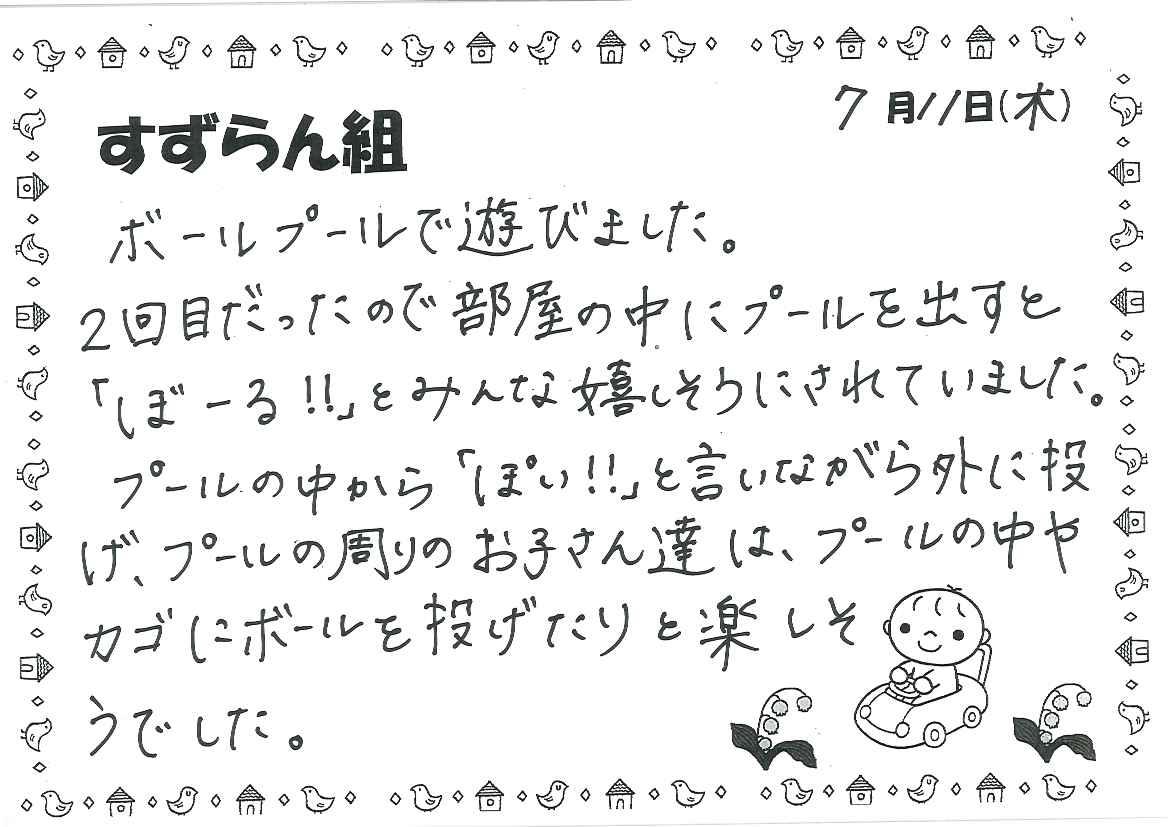 7月11日(木)
すずらん組
ボールプールで遊びました。
2回目だったので部屋の中にプールを出すと
「ぼーる!!」とみんな嬉しそうにされていました。
プールの中から「ぽい!!」と言いながら外に投
げ、プールの周りのお子さん達は、プールの中や
カゴにボールを投げたりと楽しそ
うでした。